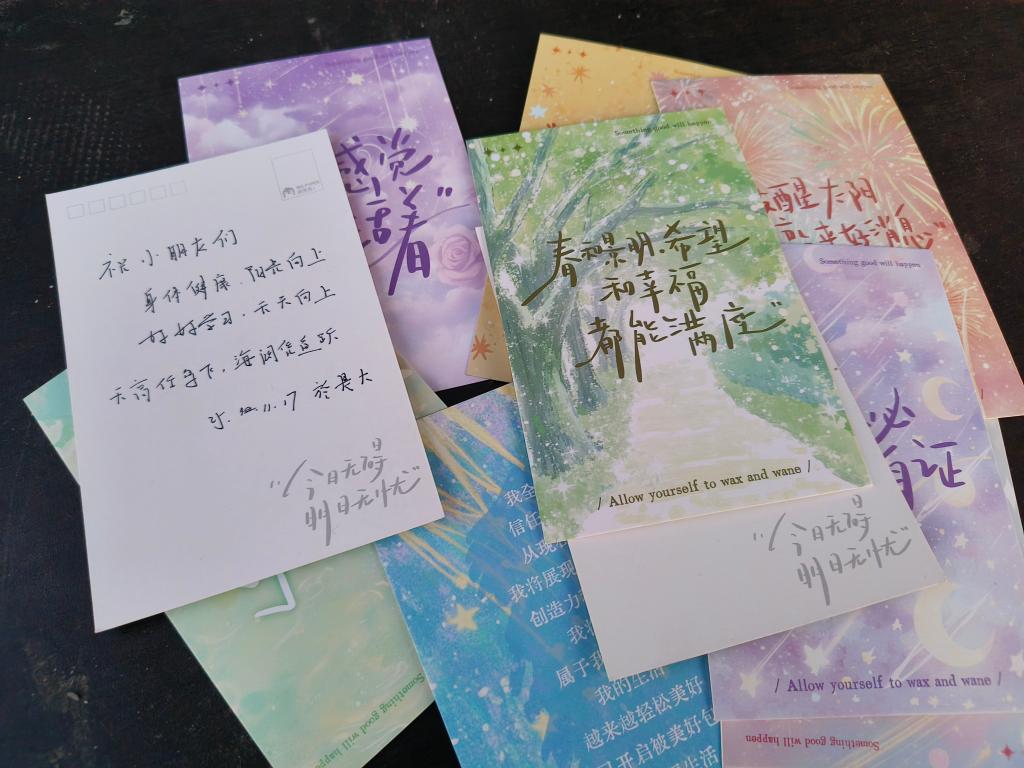 Something good will happen
感觉
活着”
祝小朋友们
身体健康、阳光向上
好好学习、天天向上
天高任鸟飞，海阔凭鱼跃
25. 11.17
“今日无碍
明日无忧”
Something good will happen
春和景明,希望
和幸福
都能满度”
/ Allow yourself to wax and wane /
醒太阳
来好消息”
Something good will happen
必
有证
/ Allow yourself to wax and wane /
“今日无碍
明日无忧”
我全
信任
从现
我将展现
创造力
我
属于我
我的生活
越来越轻松美好
开启被美好包
生活
Something good will happen
Something good will happen